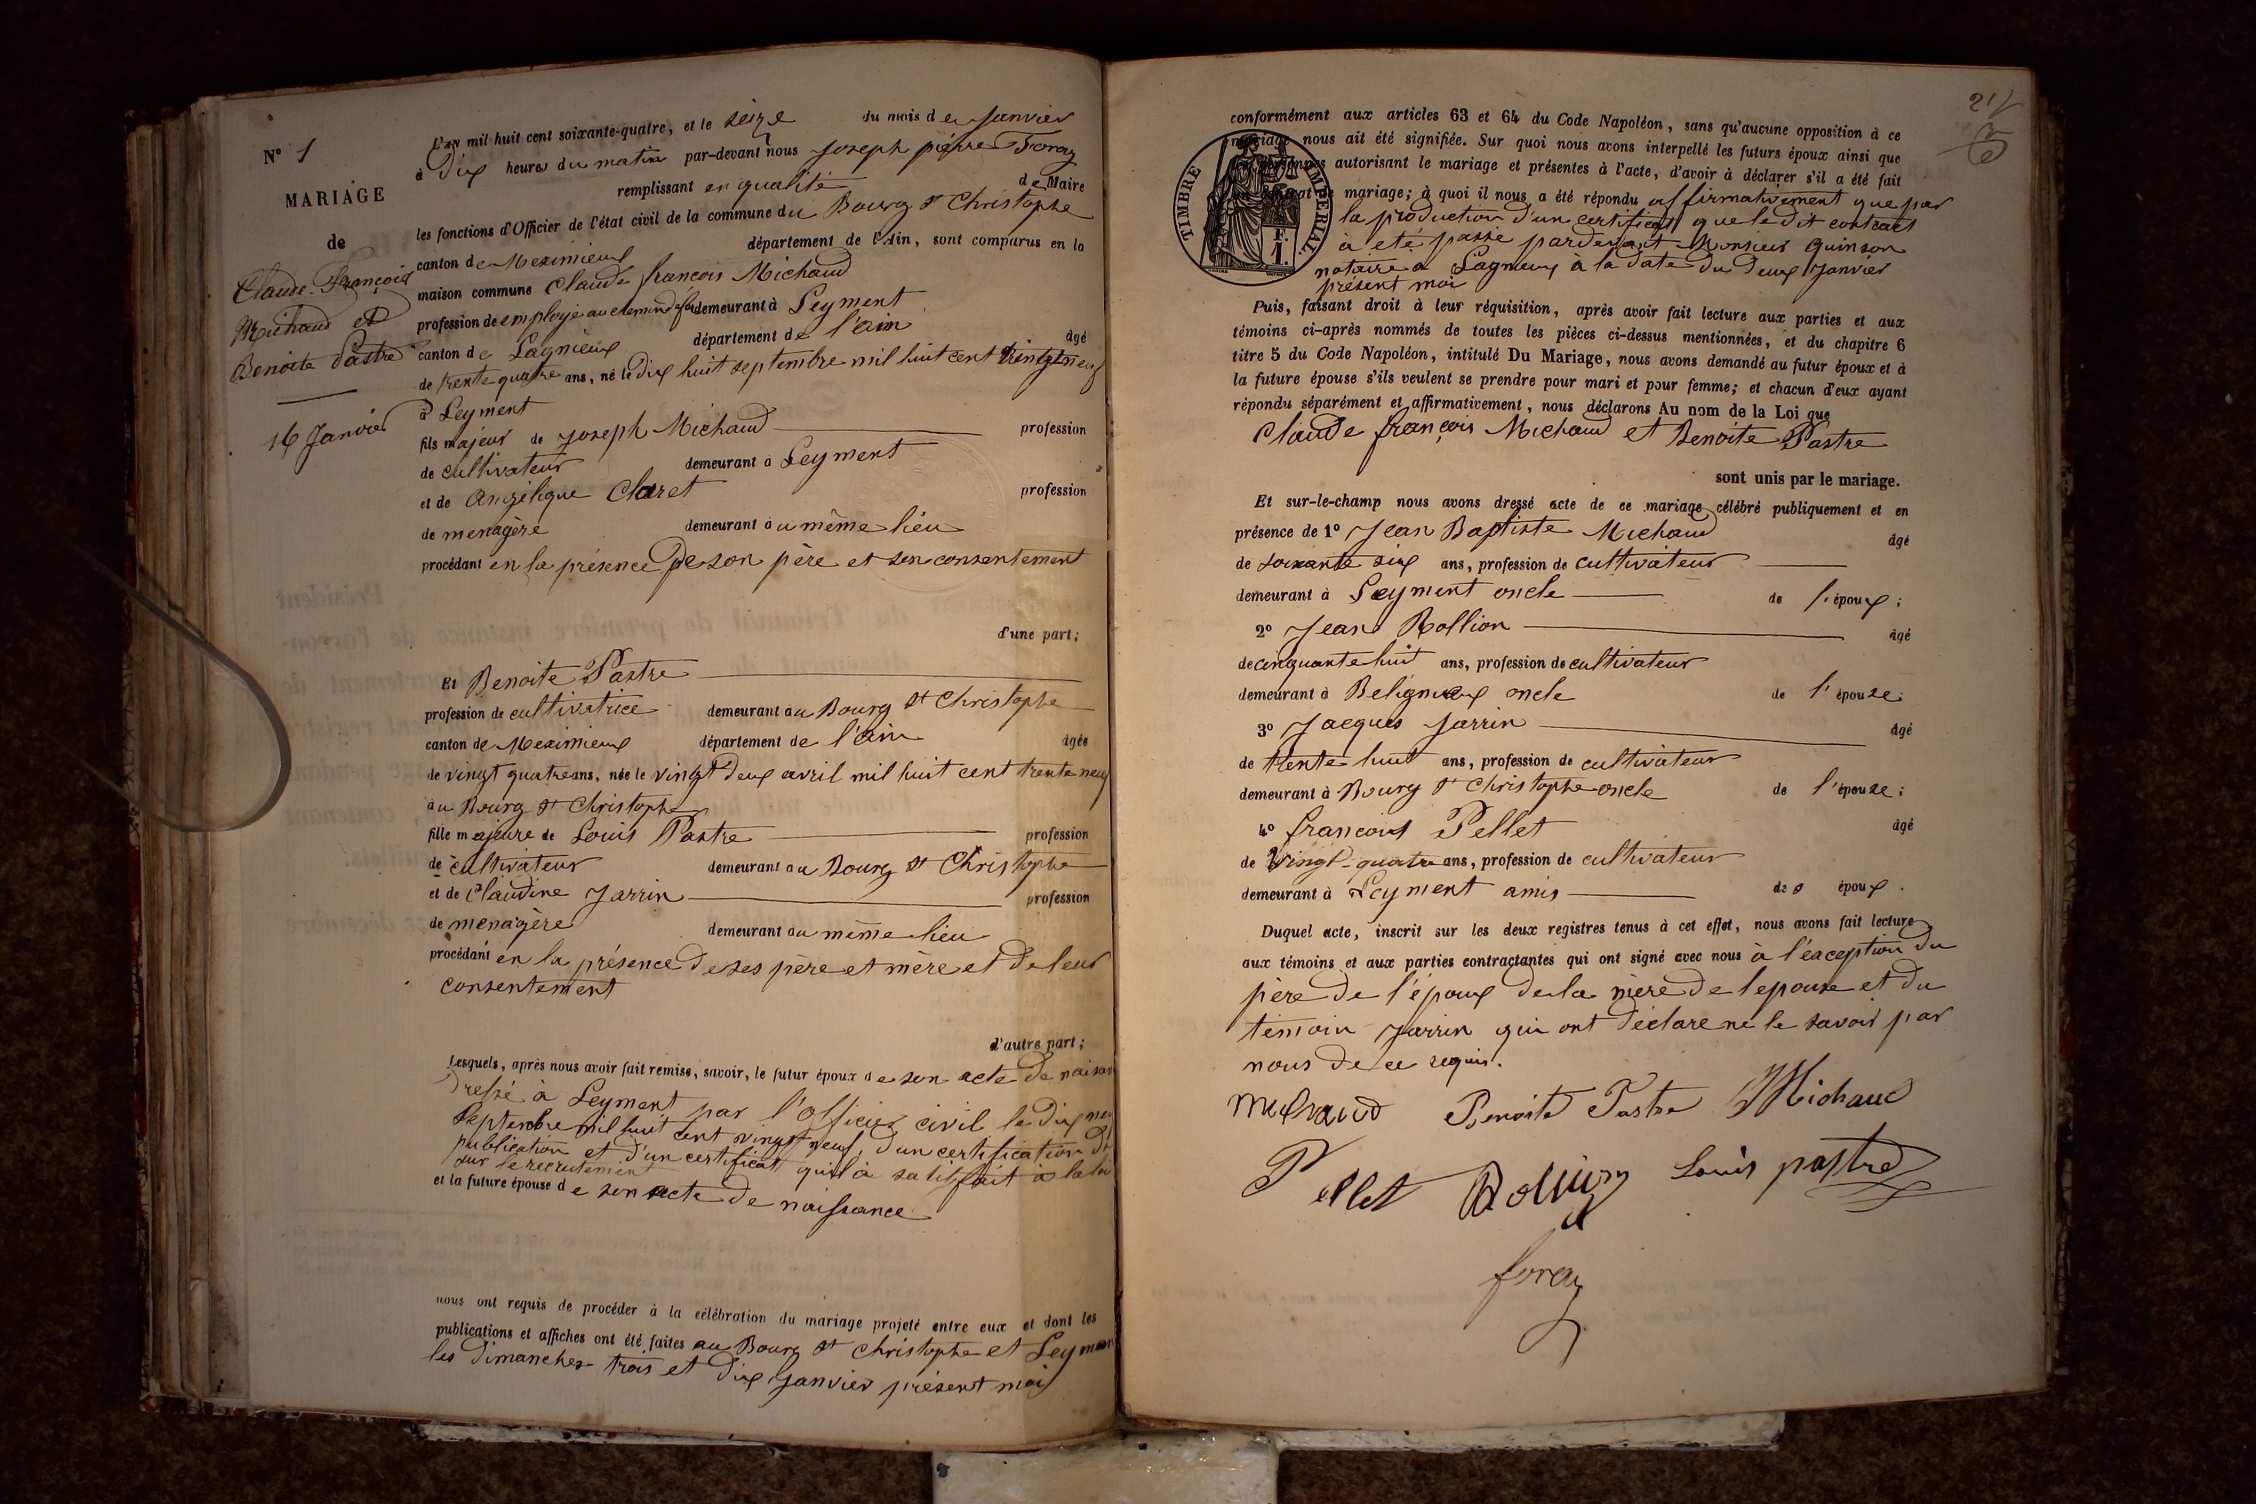 N° 1
MARIAGE
de
Claude-François
Michaud et
Benoite Pastre
16 Janvier
L'an mil huit cent soixante-quatre, et le seize du mois de Janvier
à Dix heures du matin par-devant nous Joseph pierre Foray
remplissant en qualité de Maire
les fonctions d'Officier de l'état civil de la commune du Bourg St Christophe
canton de Meximieux département de l'Ain, sont comparus en la
maison commune Claude françois Michaud
profession de employé au chemin de fer demeurant à Leyment
canton de Lagnieux département de l'ain âgé
de trente quatre ans, né le Dix huit septembre mil huit cent vingt neuf
à Leyment
fils majeur de Joseph Michaud profession
de cultivateur demeurant à Leyment
et de Angélique Claret profession
de menagère demeurant au même lieu
procédant en la présence De son père et son consentement
d'une part;
Et Benoite Pastre
profession de cultivatrice demeurant au Bourg St Christophe
canton de Meximieux département de l'ain âgée
de vingt quatre ans, née le vingt Deux avril mil huit cent trente neuf
au Bourg St Christophe
fille majeure de Louis Pastre profession
de cultivateur demeurant au Bourg St Christophe
et de Claudine Jarrin profession
de menagère demeurant au même lieu
procédant en la présence De ses père et mère et De leur
consentement
d'autre part;
Lesquels, après nous avoir fait remise, savoir, le futur époux de son acte De naissan
Dressé à Leyment par l'officier civil le Dix neuf
Septembre mil huit cent vingt neuf, D'un certification De
publication et D'un certificat qu'il à satisfait à la loi
sur le recrutement
et la future épouse de son acte De naissance
nous ont requis de procéder à la célébration du mariage projeté entre eux et dont les
publications et affiches ont été faites au Bourg St Christophe et Leyment
les Dimanches trois et Dix Janvier présent mois
21
conformément aux articles 63 et 64 du Code Napoléon, sans qu'aucune opposition à ce
mariage nous ait été signifiée. Sur quoi nous avons interpellé les futurs époux ainsi que
les personnes autorisant le mariage et présentes à l'acte, d'avoir à déclarer s'il a été fait
un contrat de mariage; à quoi il nous a été répondu affirmativement que par
la production D'un certificat que le Dit contract
à été passé pardevant Monsieur quinson
notaire a Lagnieux à la Date Du Deux Janvier
présent mois
TIMBRE IMPERIAL
F.
1.
Puis, faisant droit à leur réquisition, après avoir fait lecture aux parties et aux
témoins ci-après nommés de toutes les pièces ci-dessus mentionnées, et du chapitre 6
titre 5 du Code Napoléon, intitulé Du Mariage, nous avons demandé au futur époux et à
la future épouse s'ils veulent se prendre pour mari et pour femme; et chacun d'eux ayant
répondu séparément et affirmativement, nous déclarons Au nom de la Loi que
Claude françois Michaud et Benoite Pastre
sont unis par le mariage.
Et sur-le-champ nous avons dressé acte de ce mariage célébré publiquement et en
présence de 1° Jean Baptiste Michaud âgé
de soixante six ans, profession de cultivateur
demeurant à Leyment oncle de l'époux;
2° Jean Rollion âgé
de cinquante huit ans, profession de cultivateur
demeurant à Beligneux oncle de l'épouse;
3° Jacques Jarrin âgé
de trente huit ans, profession de cultivateur
demeurant à Bourg St Christophe oncle de l'épouse;
4° françois Pellet âgé
de vingt-quatre ans, profession de cultivateur
demeurant à Leyment amis des époux.
Duquel acte, inscrit sur les deux registres tenus à cet effet, nous avons fait lecture
aux témoins et aux parties contractantes qui ont signé avec nous à l'éxception Du
père De l'époux De la mère De l'epouse et Du
témoin Jarrin qui ont Déclaré ne le savoir par
nous De ce requis.
Michaud Benoite Pastre Michaud
Pellet Rollion Louis pastre
foray